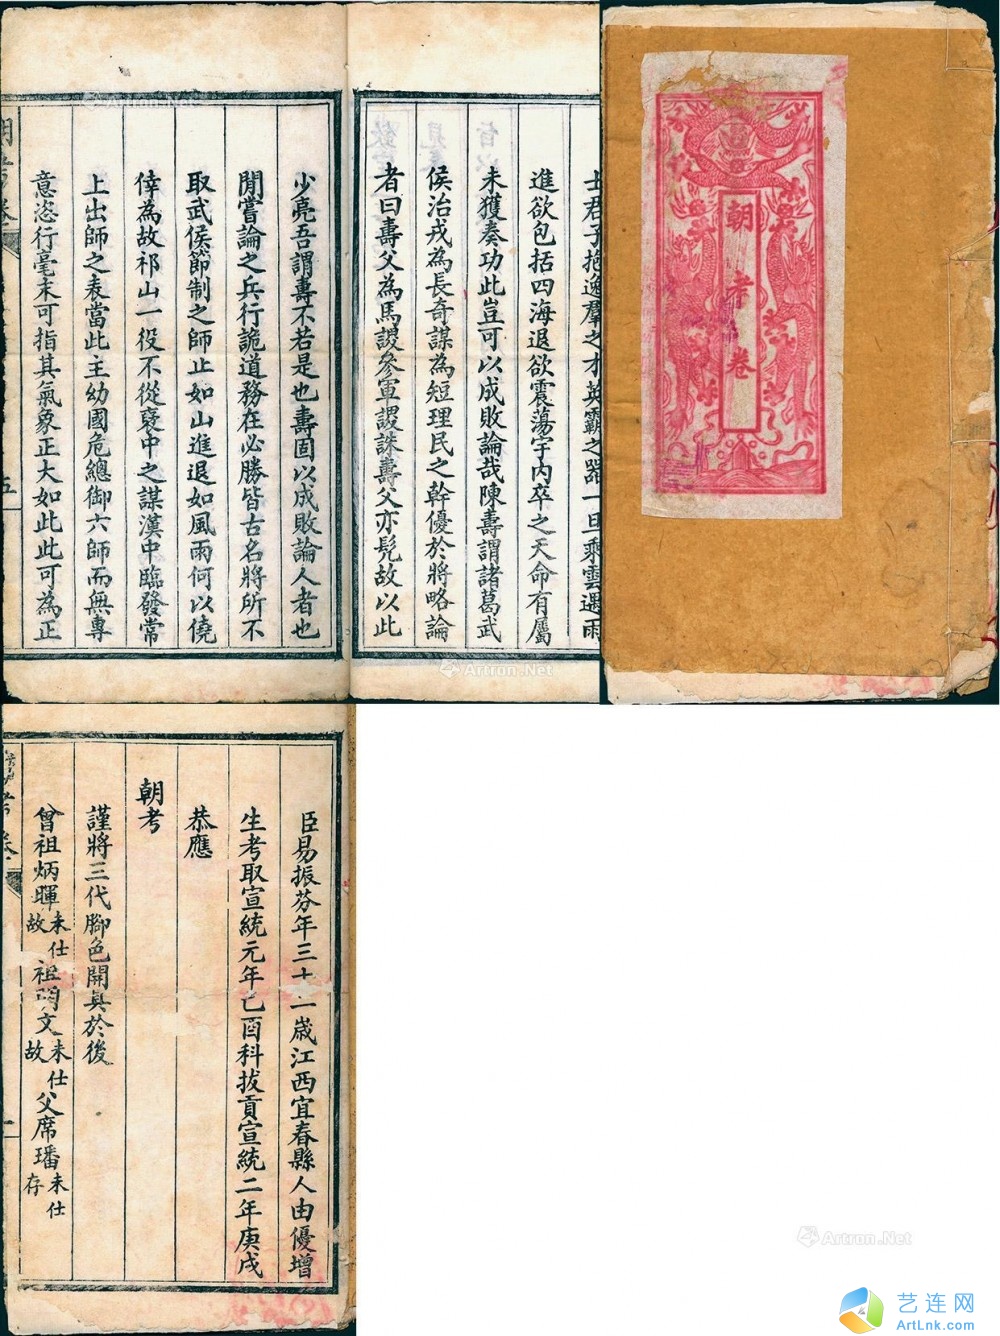 朝考卷
士君子抱逸羣之才英霸之器一旦乘雲遇雨
進欲包括四海退欲震蕩宇內卒之天命有屬
未獲奏功此豈可以成敗論哉陳壽謂諸葛武
侯治戎為長奇謀為短理民之幹優於將略論
者曰壽父為馬謖參軍謖誅壽父亦髡故以此
少亮吾謂壽不若是也壽固以成敗論人者也
閒嘗論之兵行詭道務在必勝皆古名將所不
取武侯節制之師止如山進退如風雨何以僥
倖為故祁山一役不從襃中之謀漢中臨發常
上出師之表當此主幼國危總御六師而無專
意恣行毫末可指其氣象正大如此此可為正
朝考卷
五
臣易振芬年三十一歲江西宜春縣人由優增
生考取宣統元年己酉科拔貢宣統二年庚戌
恭應
朝考
謹將三代腳色開具於後
曾祖炳暉未仕故 祖 文未仕故 父席璠未仕存
考卷
一
Artron.Net
Artron.Net
Artron.Net
艺连网
ArtLnk.com